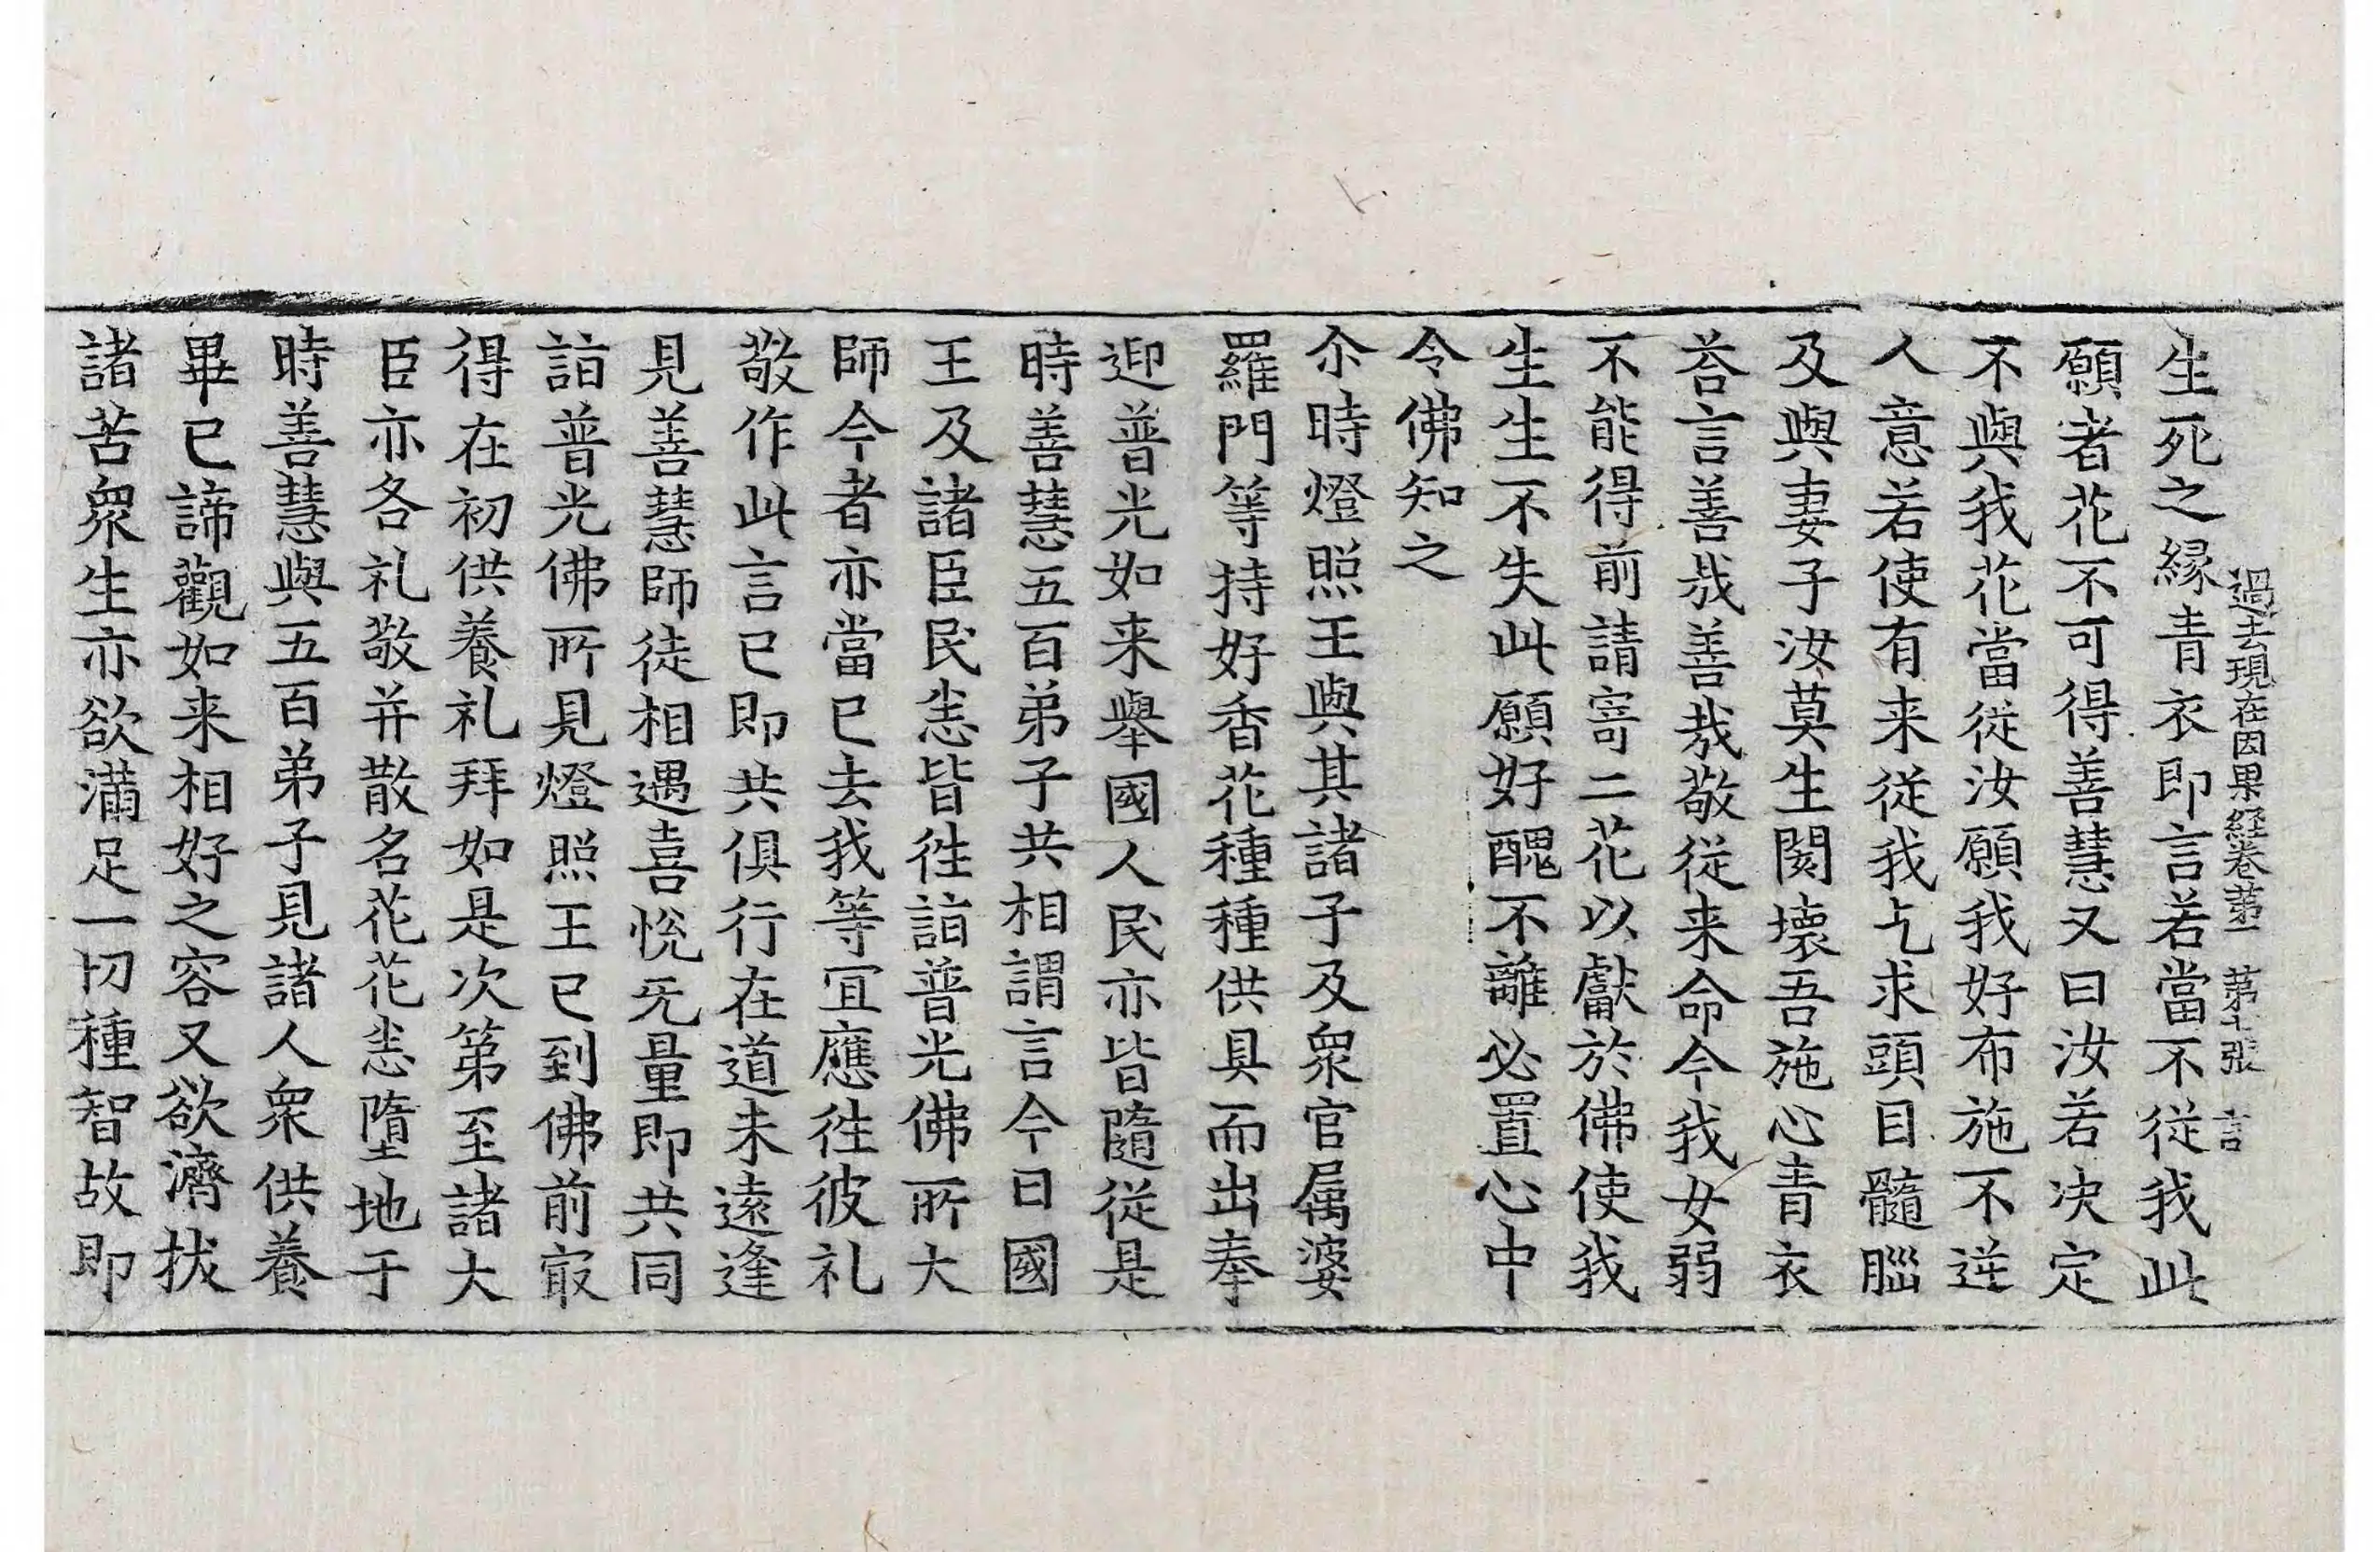 過去現在因果経卷苐一　苐十張　言
生死之縁青衣即言若當不從我此
願者花不可得善慧又曰汝若决定
不與我花當從汝願我好布施不逆
人意若使有来從我乞求頭目髓腦
及與妻子汝莫生閡壊吾施心青衣
荅言善㢤善㢤敬從来命今我女弱
不能得前請寄二花以獻於佛使我
生生不失此願好醜不離必置心中
令佛知之
尒時燈照王與其諸子及衆官属婆
羅門等持好香花種種供具而出奉
迎普光如来舉國人民亦皆隨從是
時善慧五百弟子共相謂言今日國
王及諸臣民悉皆徃詣普光佛所大
師今者亦當已去我等宜應徃彼礼
敬作此言已即共俱行在道未遠逢
見善慧師徒相遇喜悦无量即共同
詣普光佛所見燈照王已到佛前㝡
得在初供養礼拜如是次第至諸大
臣亦各礼敬并散名花花悉墮地于
時善慧與五百弟子見諸人衆供養
畢已諦觀如来相好之容又欲濟拔
諸苦衆生亦欲滿足一切種智故即